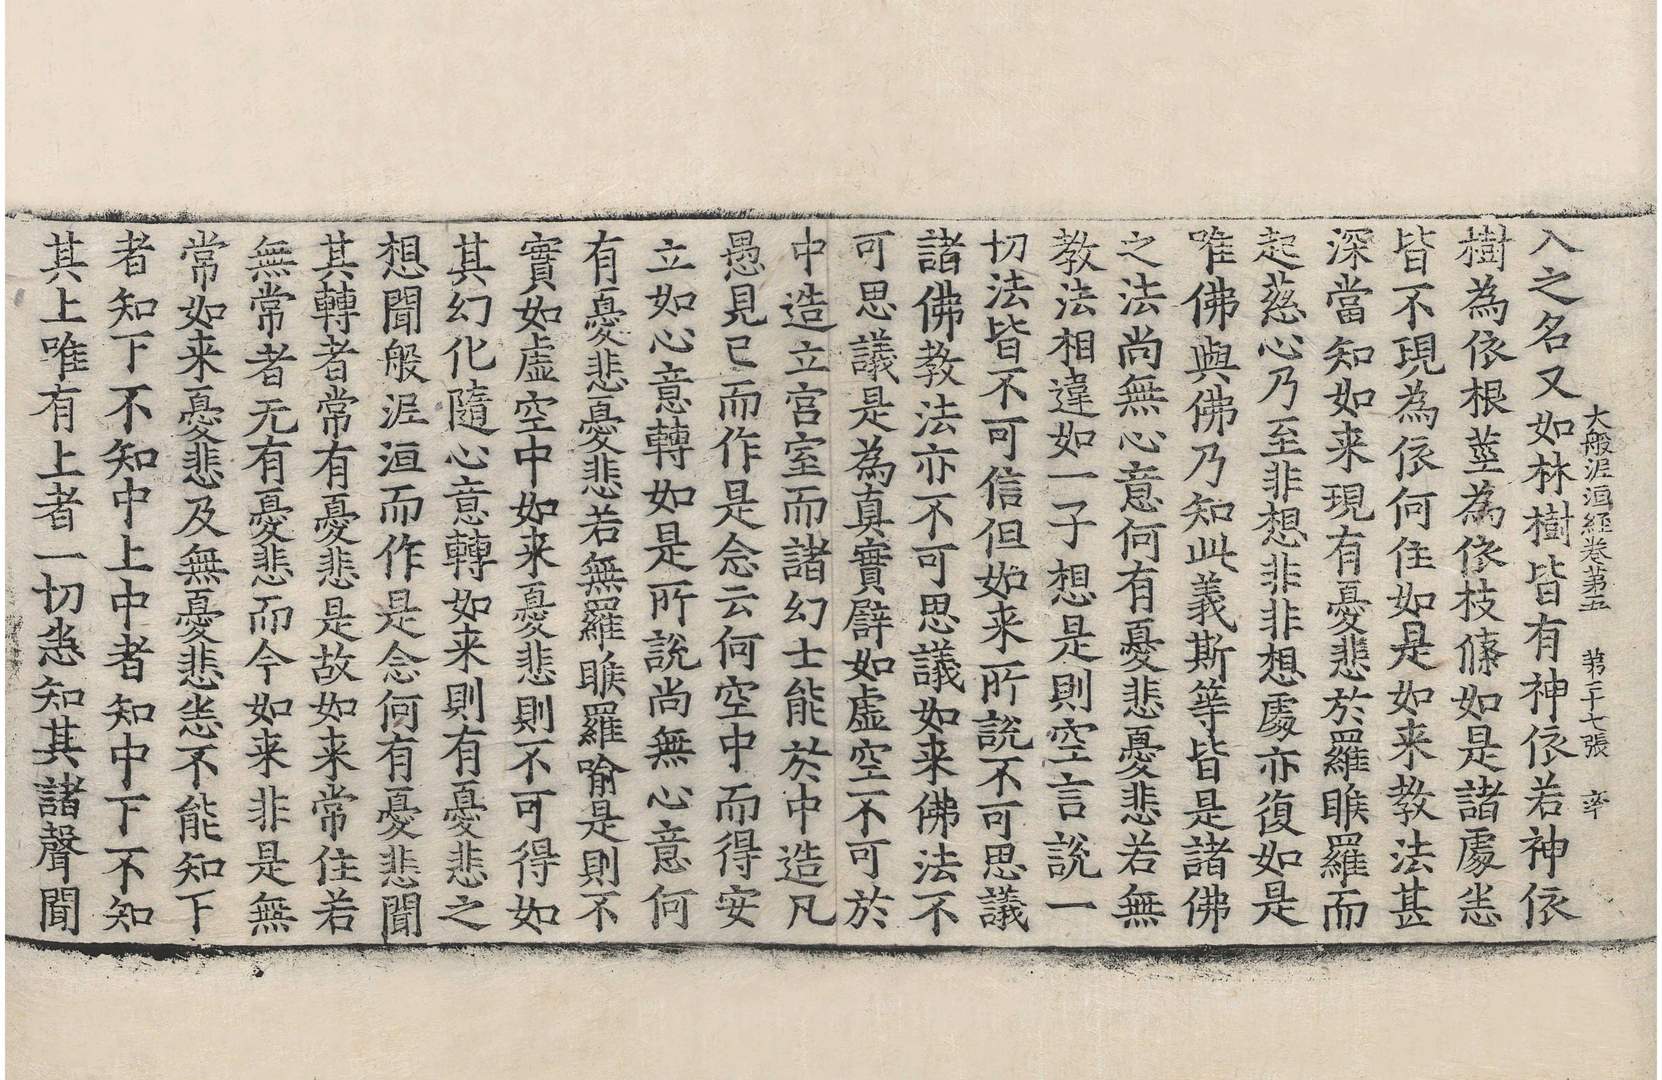 大般泥洹経巻苐五　苐二十七張　辛
入之名又如林樹皆有神依若神依
樹為依根莖為依枝條如是諸處悉
皆不現為依何住如是如来教法甚
深當知如来現有憂悲於羅睺羅而
起慈心乃至非想非非想處亦復如是
唯佛與佛乃知此義斯等皆是諸佛
之法尚無心意何有憂悲憂悲若無
教法相違如一子想是則空言說一
切法皆不可信但如来所說不可思議
諸佛教法亦不可思議如来佛法不
可思議是為真實譬如虛空不可於
中造立宮室而諸幻士能於中造凡
愚見已而作是念云何空中而得安
立如心意轉如是所說尚無心意何
有憂悲憂悲若無羅睺羅喻是則不
實如虛空中如来憂悲則不可得如
其幻化隨心意轉如来則有憂悲之
想聞般泥洹而作是念何有憂悲聞
其轉者常有憂悲是故如来常住若
無常者无有憂悲而今如来非是無
常如来憂悲及無憂悲悉不能知下
者知下不知中上中者知中下不知
其上唯有上者一切悉知其諸聲聞